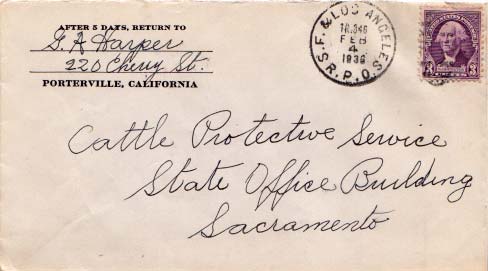 AFTER 5 DAYS, RETURN TO
G. A Harper
220 Cherry St.
PORTERVILLE, CALIFORNIA
S.F. & LOS ANGELES
TR.346
FEB
4
1936
S.R.P.O.S
3 3
Cattle Protective Service
State Office Building
Sacramento